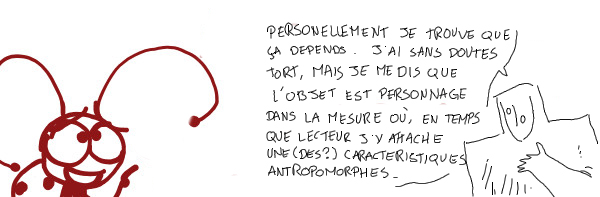 PERSONELLEMENT JE TROUVE QUE
ÇA DEPENDS. J'AI SANS DOUTES
TORT, MAIS JE ME DIS QUE
L'OBJET EST PERSONNAGE
DANS LA MESURE OÙ, EN TEMPS
QUE LECTEUR J'Y ATTACHE
UNE (DES?) CARACTERISTIQUES
ANTROPOMORPHES.